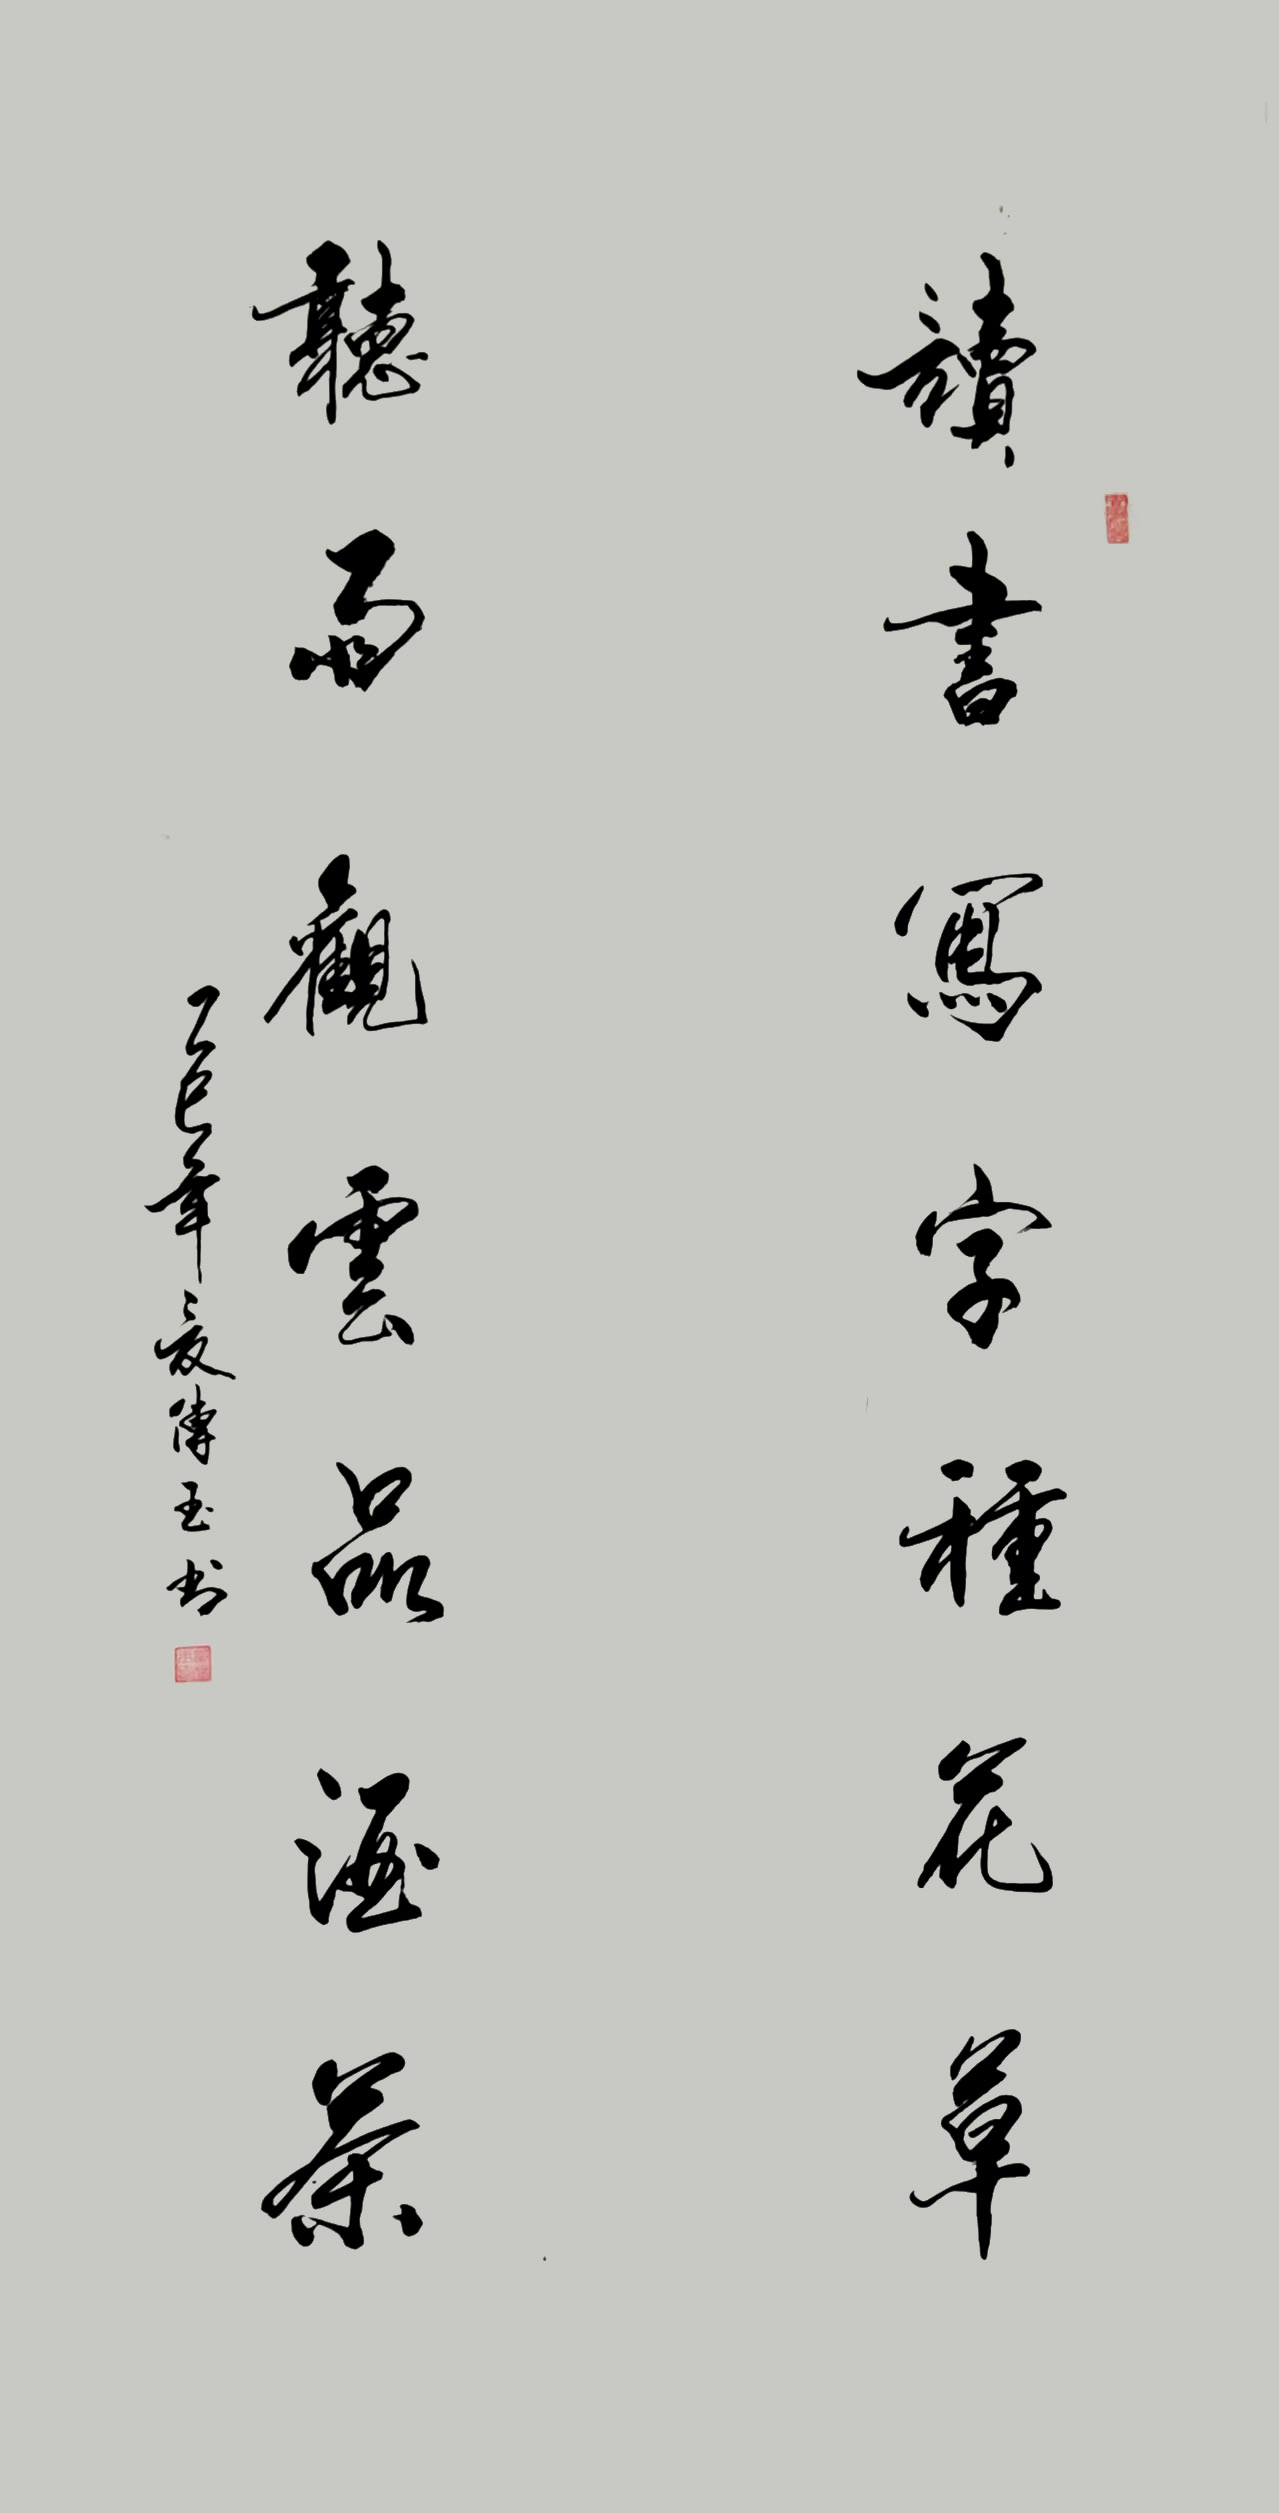 讀書寫字種花草
聽雨觀雲品酒茶
乙巳年夏傳玉书